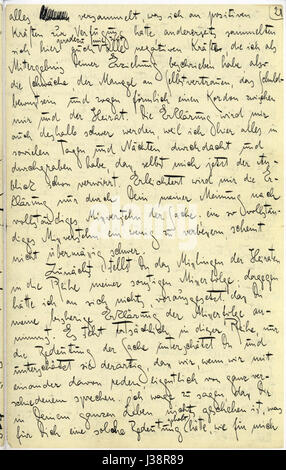 alles versammelt, was ich an positiven
Kräften zur Verfügung hatte andererseits sammelten
sich hier auch geradezu mit Wut alle die negativen Kräfte, die ich als
Mitergebnis Deiner Erziehung beschrieben habe also
die Schwäche der Mangel an Selbstvertrauen, das Schuld-
bewusstsein und zogen förmlich einen Kordon zwischen
mir und der Heirat. Die Erklärung wird mir
auch deshalb schwer werden weil ich hier alles in
sovielen Tagen und Nächten durchdacht und
durchgraben habe, dass selbst mich jetzt der An-
blick schon verwirrt. Erleichtert wird mir die Er-
klärung nur durch Dein meiner Meinung nach
vollständiges Missverstehn der Sache, ein so vollstän-
diges Missverstehn ein wenig zu verbessern scheint
nicht übermässig schwer.
Zunächst stellst Du das Misslingen der Heiraten
in die Reihe meiner sonstigen Misserfolge, dagegen
hätte ich an sich nichts, vorausgesetzt dass Du
meine bisherige Erklärung der Misserfolge an-
nimmst. Es steht tatsächlich in dieser Reihe nur
die Bedeutung der Sache unterschätzt Du und
unterschätzt sie derartig, dass wir wenn wir mit
einander davon reden eigentlich von ganz ver-
schiedenem sprechen. Ich wage zu sagen, dass Dir
in Deinem ganzen Leben nichts geschehen ist, was
für Dich eine solche Bedeutung gehabt hätte, wie für mich
J38R89